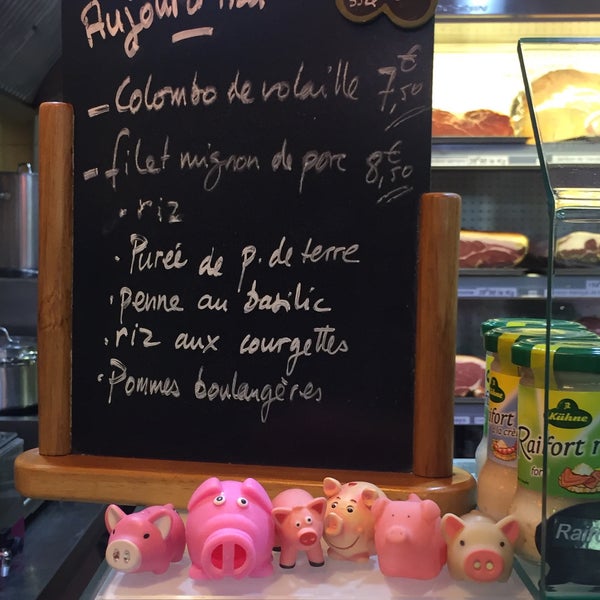 Aujourd'hui
- Colombo de volaille 7,50€
- filet mignon de porc 8,50€
· riz
· Purée de p. de terre
· penne au basilic
· riz aux courgettes
· Pommes boulangères
Kühne
Raifort
Kühne
Raifort